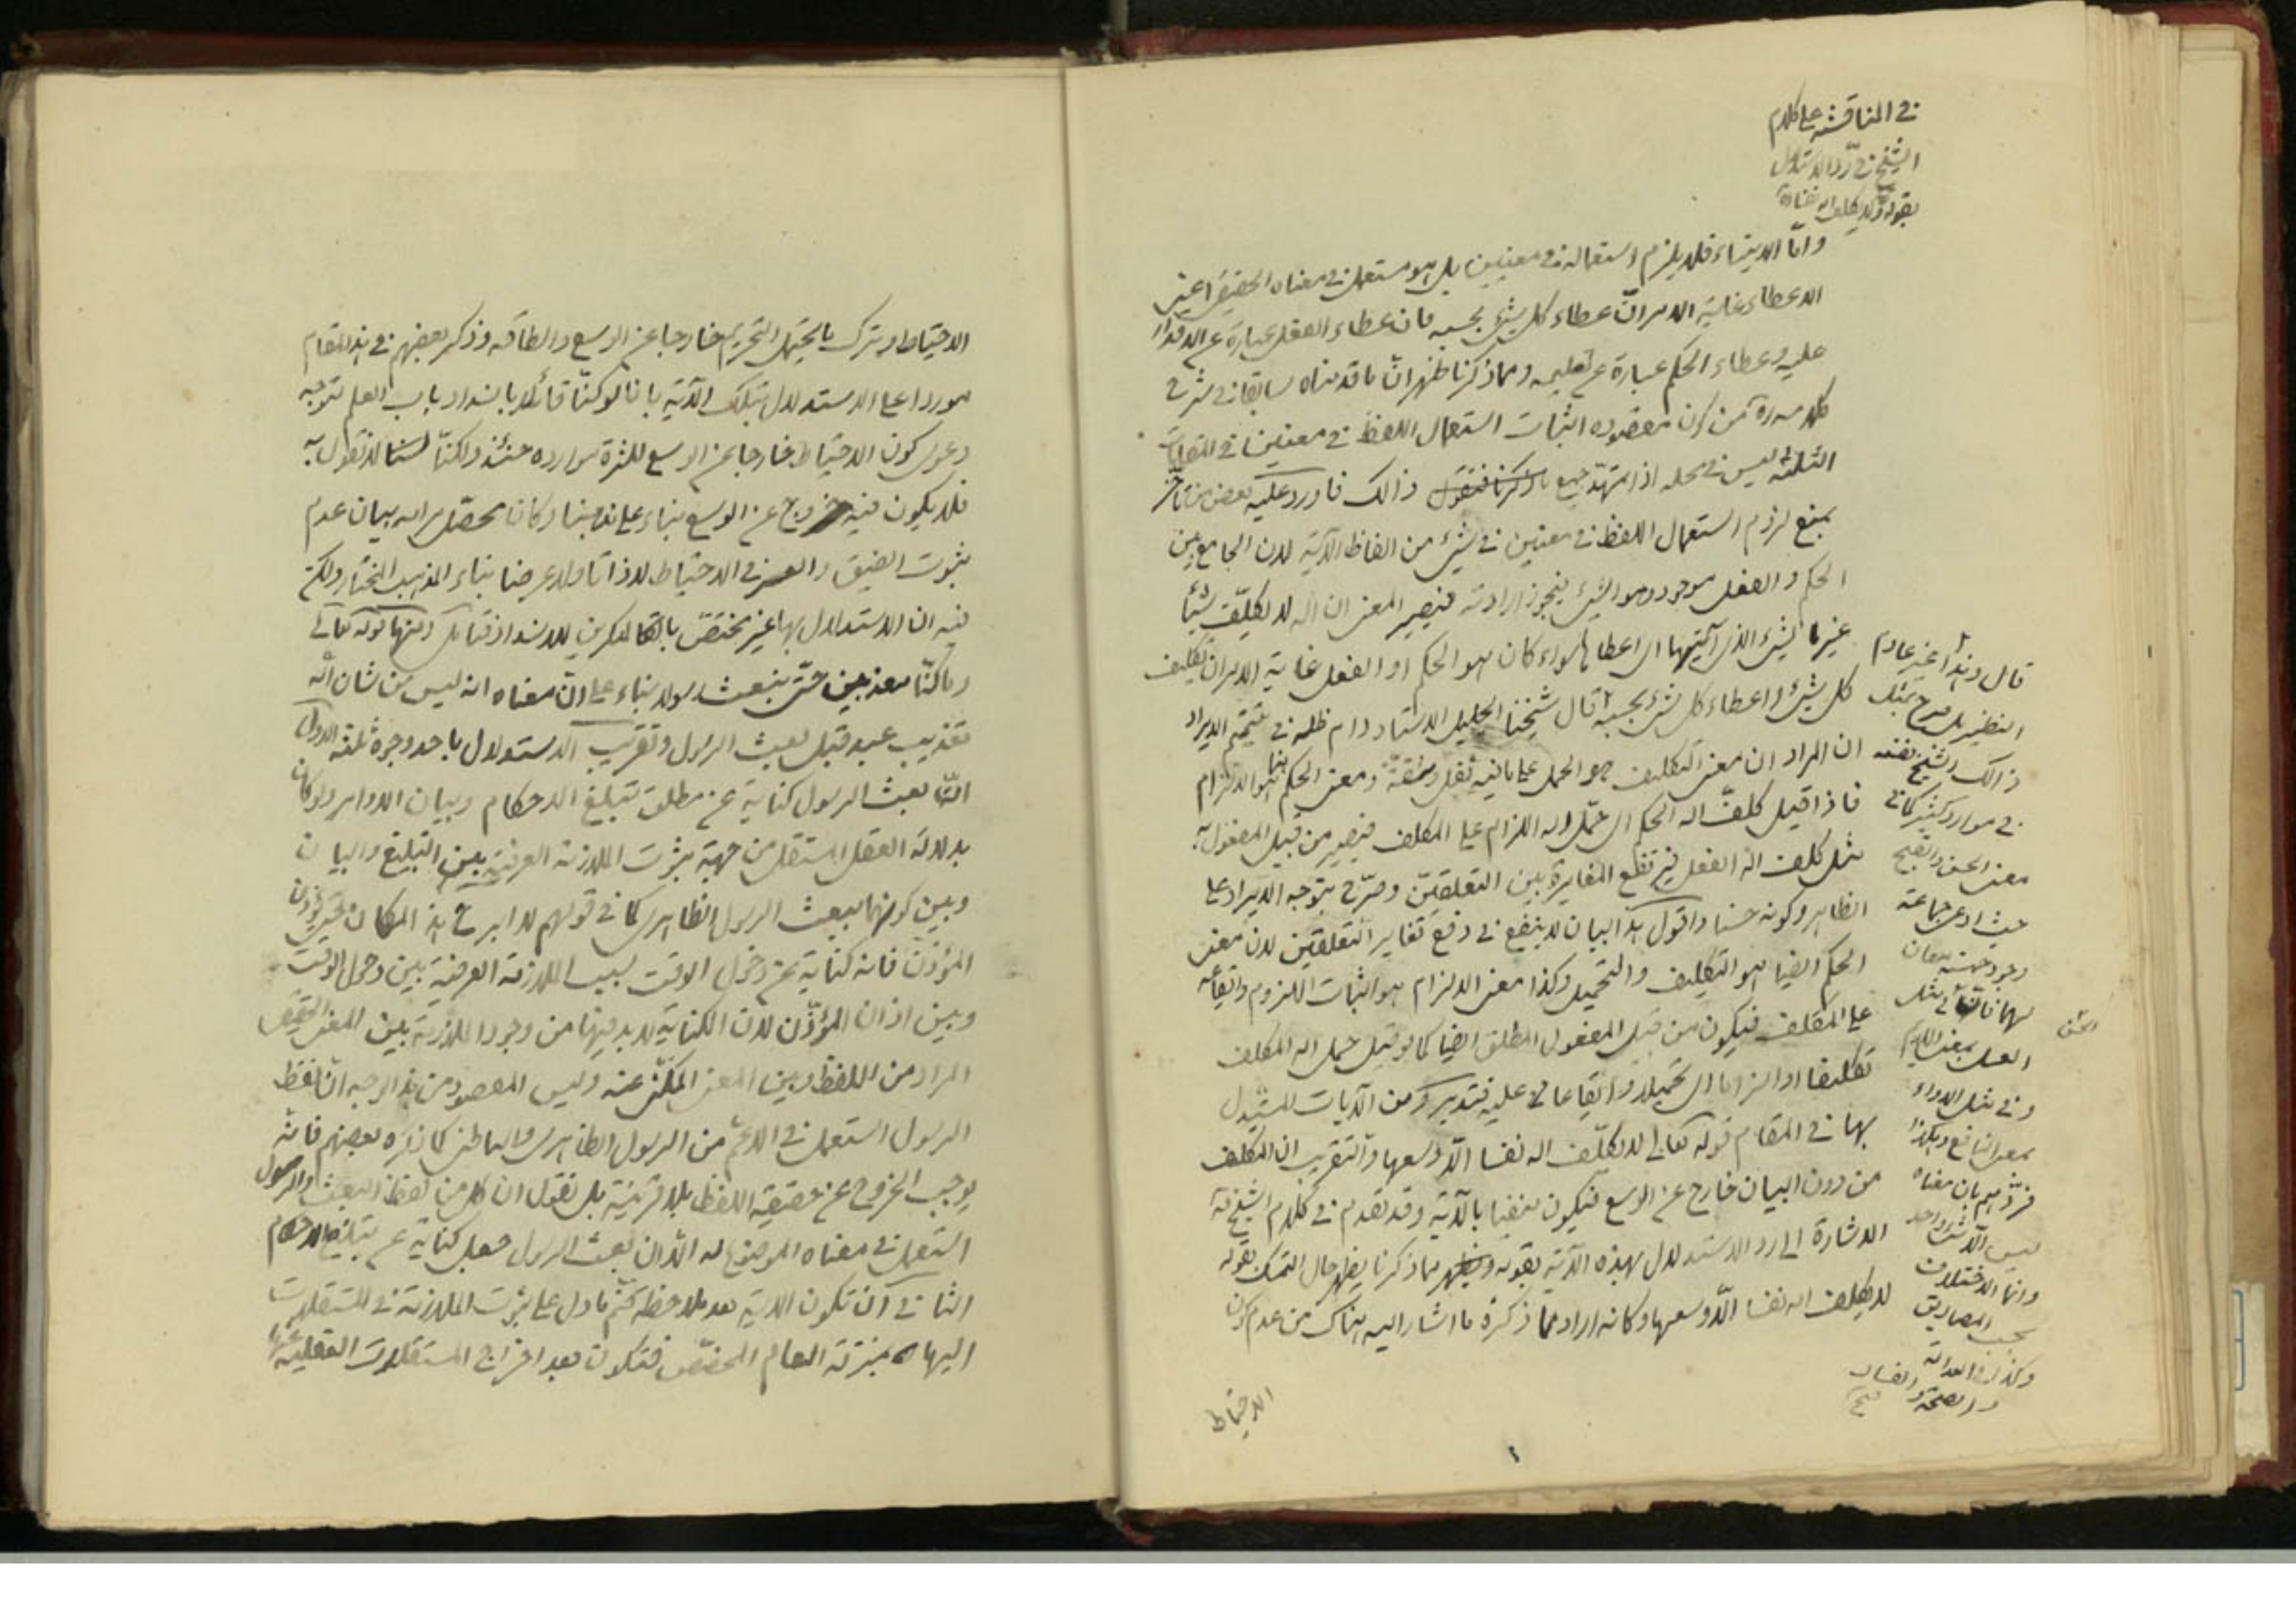 في المناقشة على كلام
الشيخ في رد الاستدلال
بقوله لا يكلف الله نفسا
واما الايتاء فلا يلزم استعماله في معنيين بل هو مستعمل في معناه الحقيقي اعني
الاعطاء غاية الامر انّ عطاء كل شيء بحسبه فان عطاء الفعل عبارة عن الاقدار
عليه وعطاء الحكم عبارة عن تعليمه ومما ذكرنا ظهر انّ ما قدمناه سابقا في شرح
كلامه ره من كون مقصوده اثبات استعمال اللفظ في معنيين في المقامات
الثلثة ليس في محله اذا تمهّد جميع ما ذكرنا فنقول ذالك فاورد عليه بعض من تاخر
بمنع لزوم استعمال اللفظ في معنيين في شيء من الفاظ الآية لان الجامع بين
الحكم والفعل موجود وهو الشيء فيجوز ارادته فيصير المعنى ان الله لا يكلّف شيئا
غير الشيء الذي آتيها اي اعطاها سواء كان هو الحكم او الفعل غاية الامر ان تكليف
كل شيء واعطاء كل شيء بحسبه قال شيخنا الجليل الاستاد دام ظله في تتميم الايراد
ان المراد ان معنى التكليف هو الحمل على ما فيه ثقل ومشقة ومعنى الحكم هنا هو الالزام
فاذا قيل كلّف الله الحكم اي حمّل الله الالزام على المكلف فيصير من قبيل المفعول به
مثل كلف الله الفعل فيرتفع المغايرة بين التعلقين وصرّح بتوجه الايراد على
الظاهر وكونه حسنا واقول هذا البيان لا ينفع في دفع تغاير التعلقين لان معنى
الحكم ايضا هو التكليف والتحميل وكذا معنى الالزام هو اثبات اللزوم وايقاعه
على المكلف فيكون من قبيل المفعول المطلق ايضا كما لو قيل حمل الله المكلف
تكليفا او الزاما اي تحميلا وايقاعا عليه فتدبر ومن الآيات المستدل
بها في المقام قوله تعالى لا يكلّف الله نفسا الّا وسعها والتقريب ان التكليف
من دون البيان خارج عن الوسع فيكون منفيا بالآية وقد تقدم في كلام الشيخ ره
الاشارة الى رد الاستدلال بهذه الآية بقوله ومما ذكرنا يظهر حال التمسك بقوله
لا يكلف الله نفسا الّا وسعها وكانه اراد مما ذكره ما اشار اليه هناك من عدم كون
الاحتياط
قال وهذا غير عادم
النظير بل صرح بمثل
ذالك الشيخ نفسه
في موارد كثيرة كما في
معنى الحسن والقبح
حيث ادعى جماعة
وجود معان
لهما
بمعنى
وفي مثل الدواء
بمعنى النافع وهكذا
فردّهم بان معناه
ليس الّا شيئا واحد
وانما الاختلاف
بحسب المصاديق
وكذا في العدالة
والصحة والفساد
الاحتياط وترك ما يحتمل التحريم خارجا عن الوسع والطاقة وذكر بعضهم في هذا المقام
موردا على الاستدلال بتلك الآية بانا لو كنّا قائلا بانسداد باب العلم لتوجه
دعوى كون الاحتياط خارجا عن الوسع لكثرة موارده حينئذ ولكنّا لسنا لا نقول به
فلا يكون فيه خروج عن الوسع بناء على مذهبنا وكان محصّل مرامه بيان عدم
ثبوت الضيق والعسر في الاحتياط لا ذاتا ولا عرضا بناء المذهب المختار ولكن
فيه ان الاستدلال بها غير مختصّ بالقائلين للانسداد فتامل ومنها قوله تعالى
وما كنّا معذبين حتى نبعث رسولا بناء على انّ معناه انه ليس من شان الله
تعذيب عبد قبل بعث الرسول وتقريب الاستدلال باحد وجوه ثلثة الاول
انّ بعث الرسول كناية عن مطلق تبليغ الاحكام وبيان الاوامر ولو كان
بدلالة العقل المستقل من جهة ثبوت الملازمة العرفية بين التبليغ والبيان
وبين كونهما ببعث الرسول الظاهري كما في قولهم لا ابرح في هذا المكان حتى يؤذن
المؤذن فانه كناية عن دخول الوقت لسبب الملازمة العرفية بين دخول الوقت
وبين اذان المؤذّن لان الكناية لا بد فيها من وجود الملازمة بين المعنى الحقيقي
المراد من اللفظ وبين المعنى المكنّى عنه وليس المقصود من هذا الوجه ان لفظ
الرسول استعمل في الاعم من الرسول الظاهري والباطني كما ذكره بعضهم فانّه
يوجب الخروج عن حقيقة اللفظ بلا قرينة بل نقول ان كل من لفظ البعث والرسول
استعمل في معناه الموضوع له الّا ان بعث الرسول جعل كناية عن تبليغ الاحكام
الثاني ان تكون الآية بعد ملاحظة ما دل على ثبوت الملازمة في المستقلات
اليها بمنزلة العام المخصّص فتكون بعد اخراج المستقلات العقلية